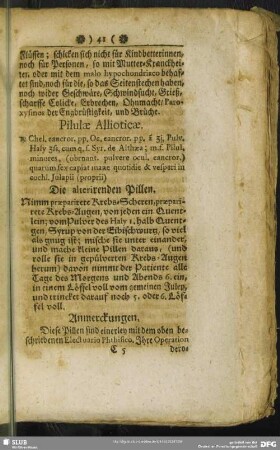 )o( 41 )o(
Flüssen; schicken sich nicht für Kindbetterinnen,
noch für Personen, so mit Mutter-Kranckhei-
ten, oder mit dem malo hypochondriaco behaf-
tet sind, noch für die, so das Seitenstechen haben,
noch wider Geschwäre, Schwindsucht, Grieß,
scharffe Colick, Erbrechen, Ohnmacht, Paro-
xysmos der Engbrüstigkeit, und Brüche.
Pilulæ Allioticæ.
℞. Chel. cancror. pp. Oc. cancror. pp.
Haly cum q. s. Syr. de Althæa; m. f. Pilul.
minores, (obrnant. pulvere ocul. cancror.)
quarum sex capiat mane quotidie & vesperi in
cochl. Julapii (proprii)
Die alterirenden Pillen.
Nimm præparirte Krebs-Scheren, præpari-
rete Krebs-Augen, von jeden ein Quent-
lein; vom Pulver des Haly 1. halb Quent-
gen, Syrup von der Eibischwurz, so viel
als gnug ist; mische sie unter einander,
und mache kleine Pillen daraus, (und
rolle sie in gepülverten Krebs-Augen
herum) davon nimmt der Patiente alle
Tage des Morgens und Abends 6. ein,
in einem Löffel voll vom gemeinen Julep,
und trincket darauf noch 5. oder 6. Löf-
fel voll.
Anmerckungen.
Diese Pillen sind einerley mit dem oben be-
schriebenen Electuario Phthisico. Ihre Operation
C 5 dero-
SLUB